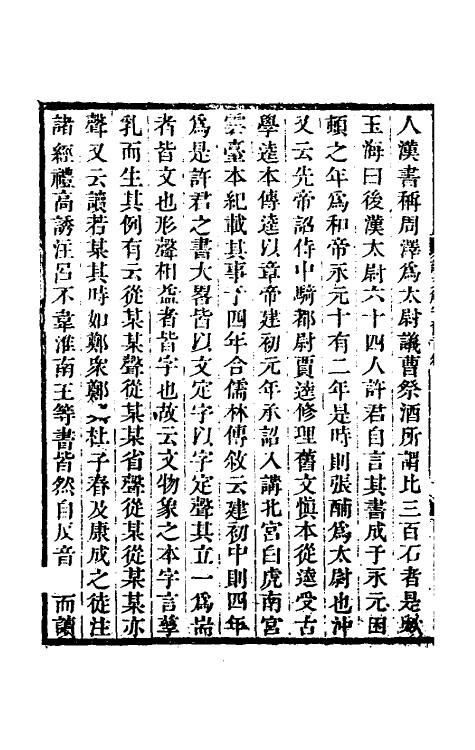 人漢書稱周澤爲太尉議曹祭酒所謂比三百石者是歟
玉海曰後漢太尉六十四人許君自言其書成于永元困
頓之年爲和帝永元十有二年是時則張酺爲太尉也沖
又云先帝詔侍中騎都尉賈逵修理舊文愼本從逵受古
學逵本傳逵以章帝建初元年承詔入講北宮白虎南宮
雲臺本紀載其事于四年合儒林傳敘云建初中則四年
爲是許君之書大畧皆以文定字以字定聲其立一爲耑
者皆文也形聲相益者皆字也故云文物象之本字言孳
乳而生其例有云從某某聲從某某省聲從某從某某亦
聲又云讀若某其時如鄭衆鄭杜子春及康成之徒注
諸經禮高誘注呂不韋淮南王等書皆然自反音 而讀